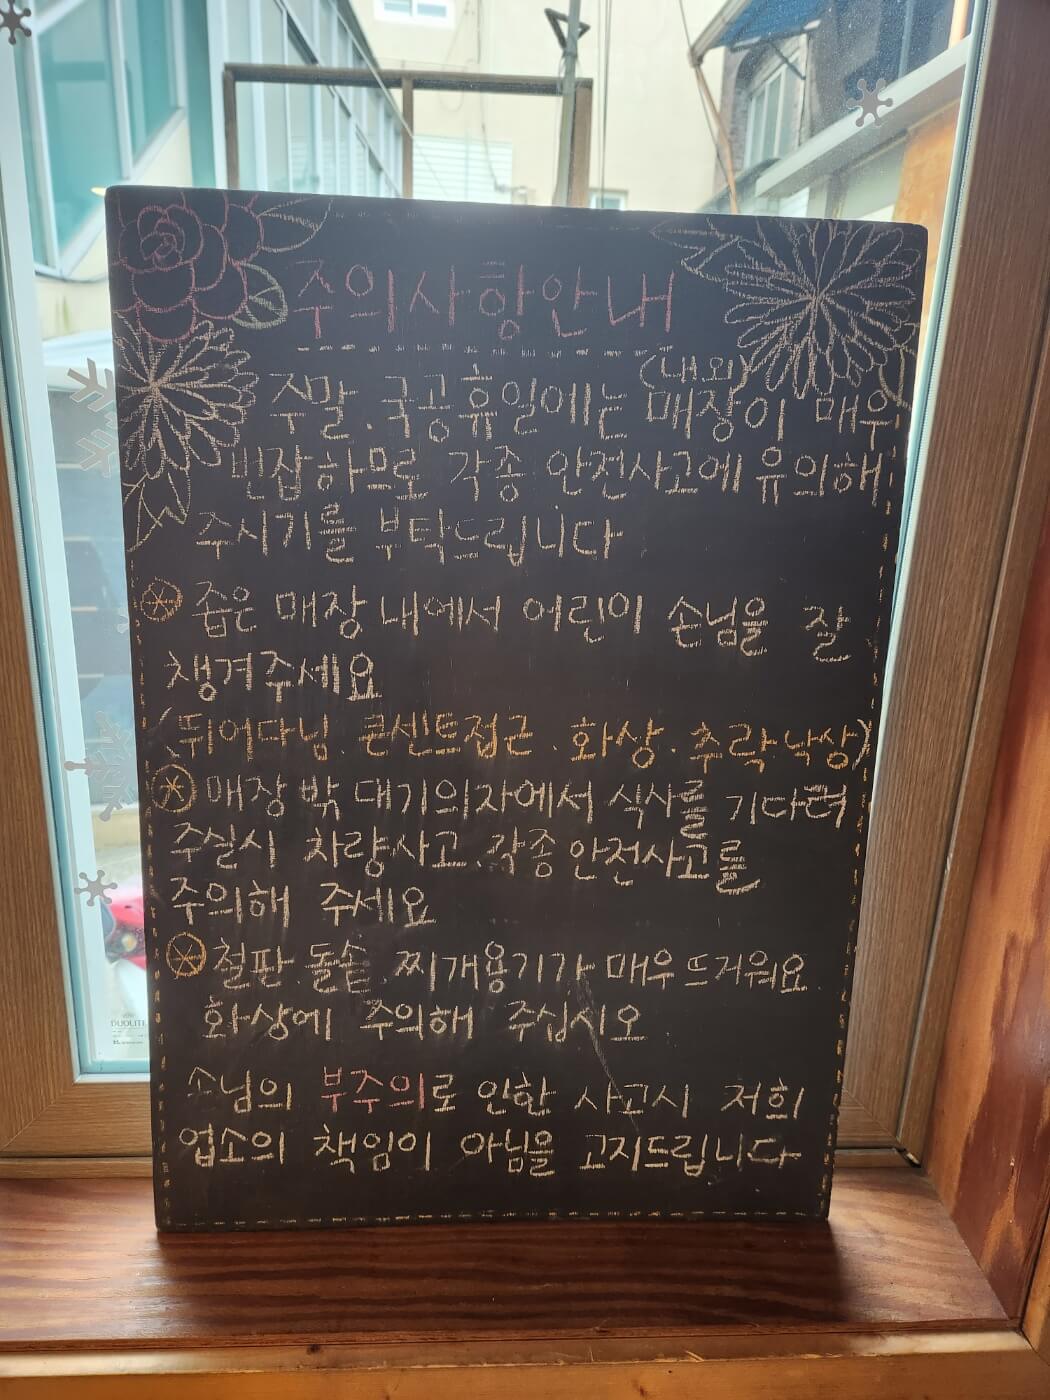 주의사항안내
(내외)
주말.국공휴일에는 매장이 매우
번잡하므로 각종 안전사고에 유의해
주시기를 부탁드립니다
좁은 매장 내에서 어린이 손님을 잘
챙겨주세요
(뛰어다님.콘센트접근.화상.추락.낙상)
매장 밖 대기의자에서 식사를 기다려
주실시 차량사고.각종 안전사고를
주의해 주세요
철판.돌솥.찌개용기가 매우 뜨거워요
화상에 주의해 주십시오
손님의 부주의로 인한 사고시 저희
업소의 책임이 아님을 고지드립니다
DUOLITE